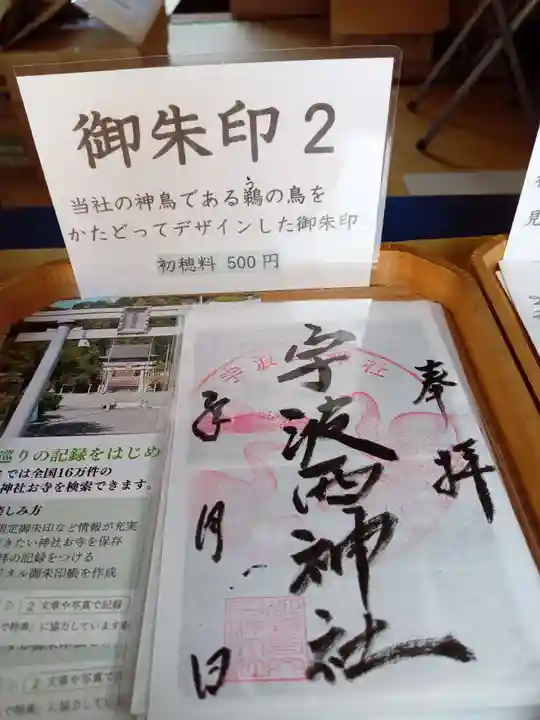 御朱印 2
当社の神鳥である鵜の鳥を
う
かたどってデザインした御朱印
初穂料 500円
奉拝
宇波西神社
年月日
巡りの記録をはじめ
では全国16万件の
神社お寺を検索できます。
しみ方
限定御朱印など情報が充実
きたい神社お寺を保存
拝の記録をつける
タル御朱印帳を作成
2 文章や写真で記録
で特典」に協力しています
タル御朱印帳を作成
2 文章や写真で記録
見